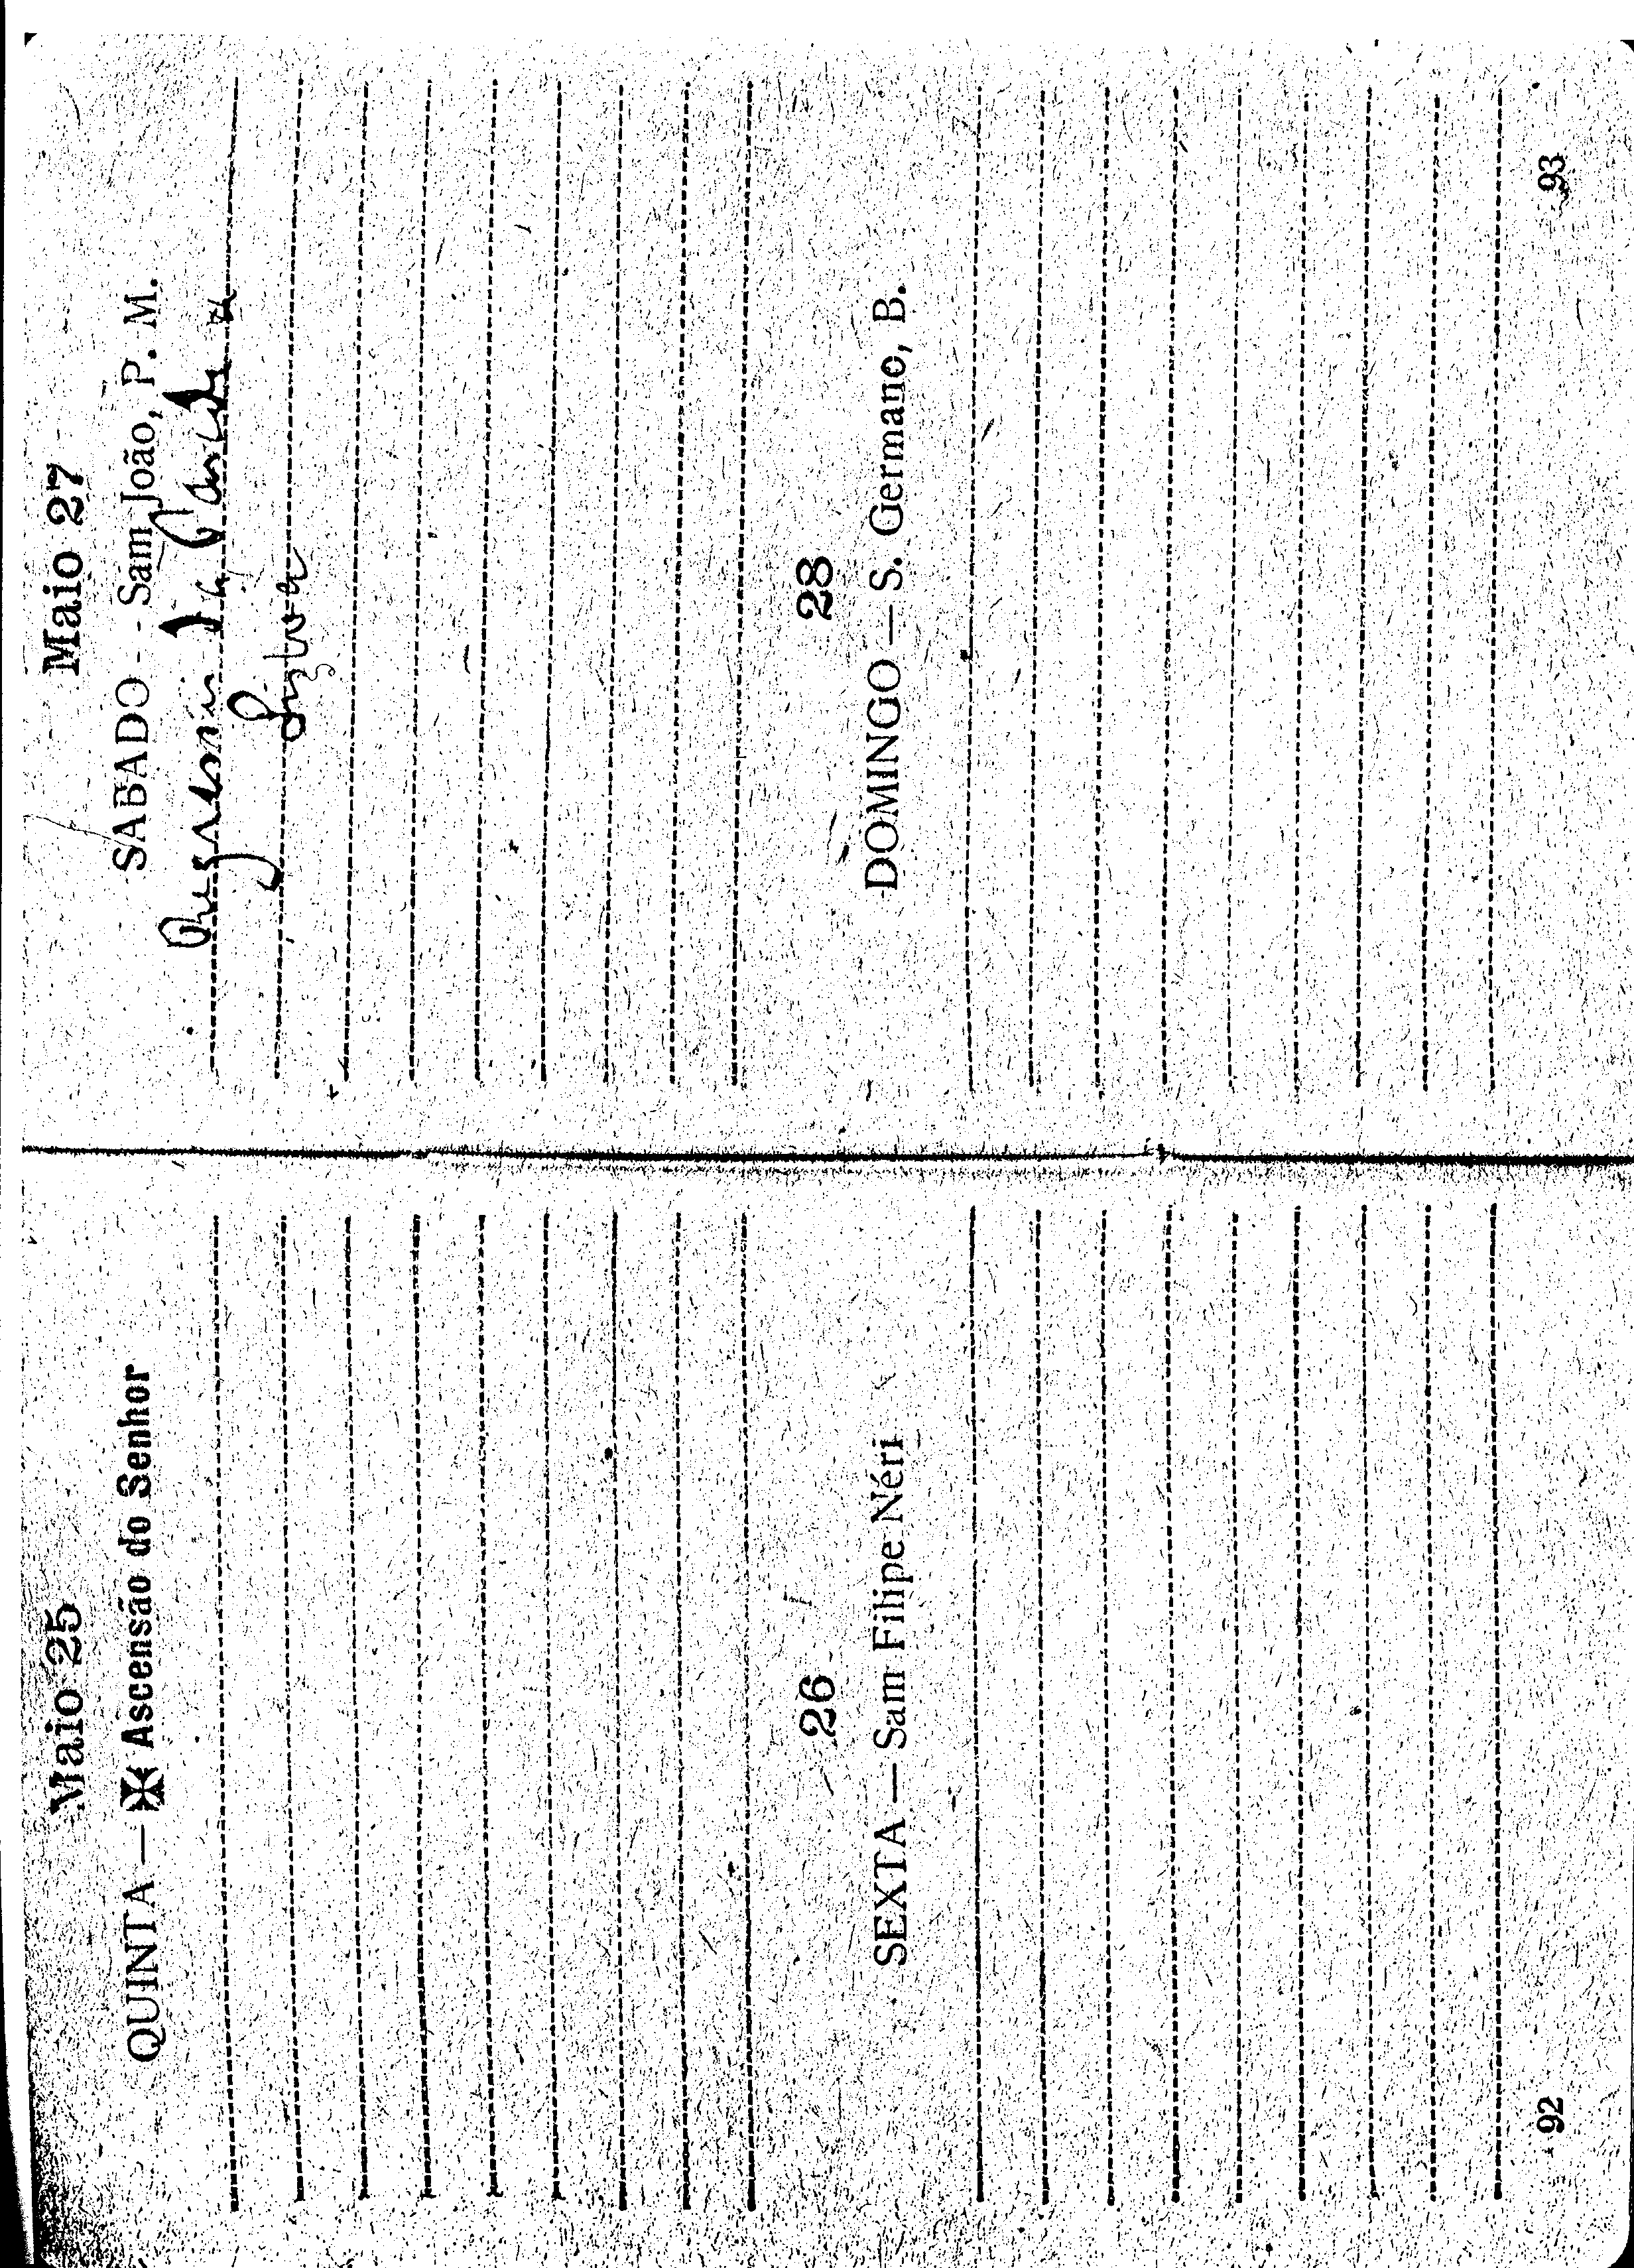 Maio 25
QUINTA — ✠ Ascensão do Senhor
26
SEXTA — Sam Filipe Néri
92
Maio 27
SABADO - - Sam João, P. M.
da
Lisboa
28
DOMINGO — S. Germano, B.
93